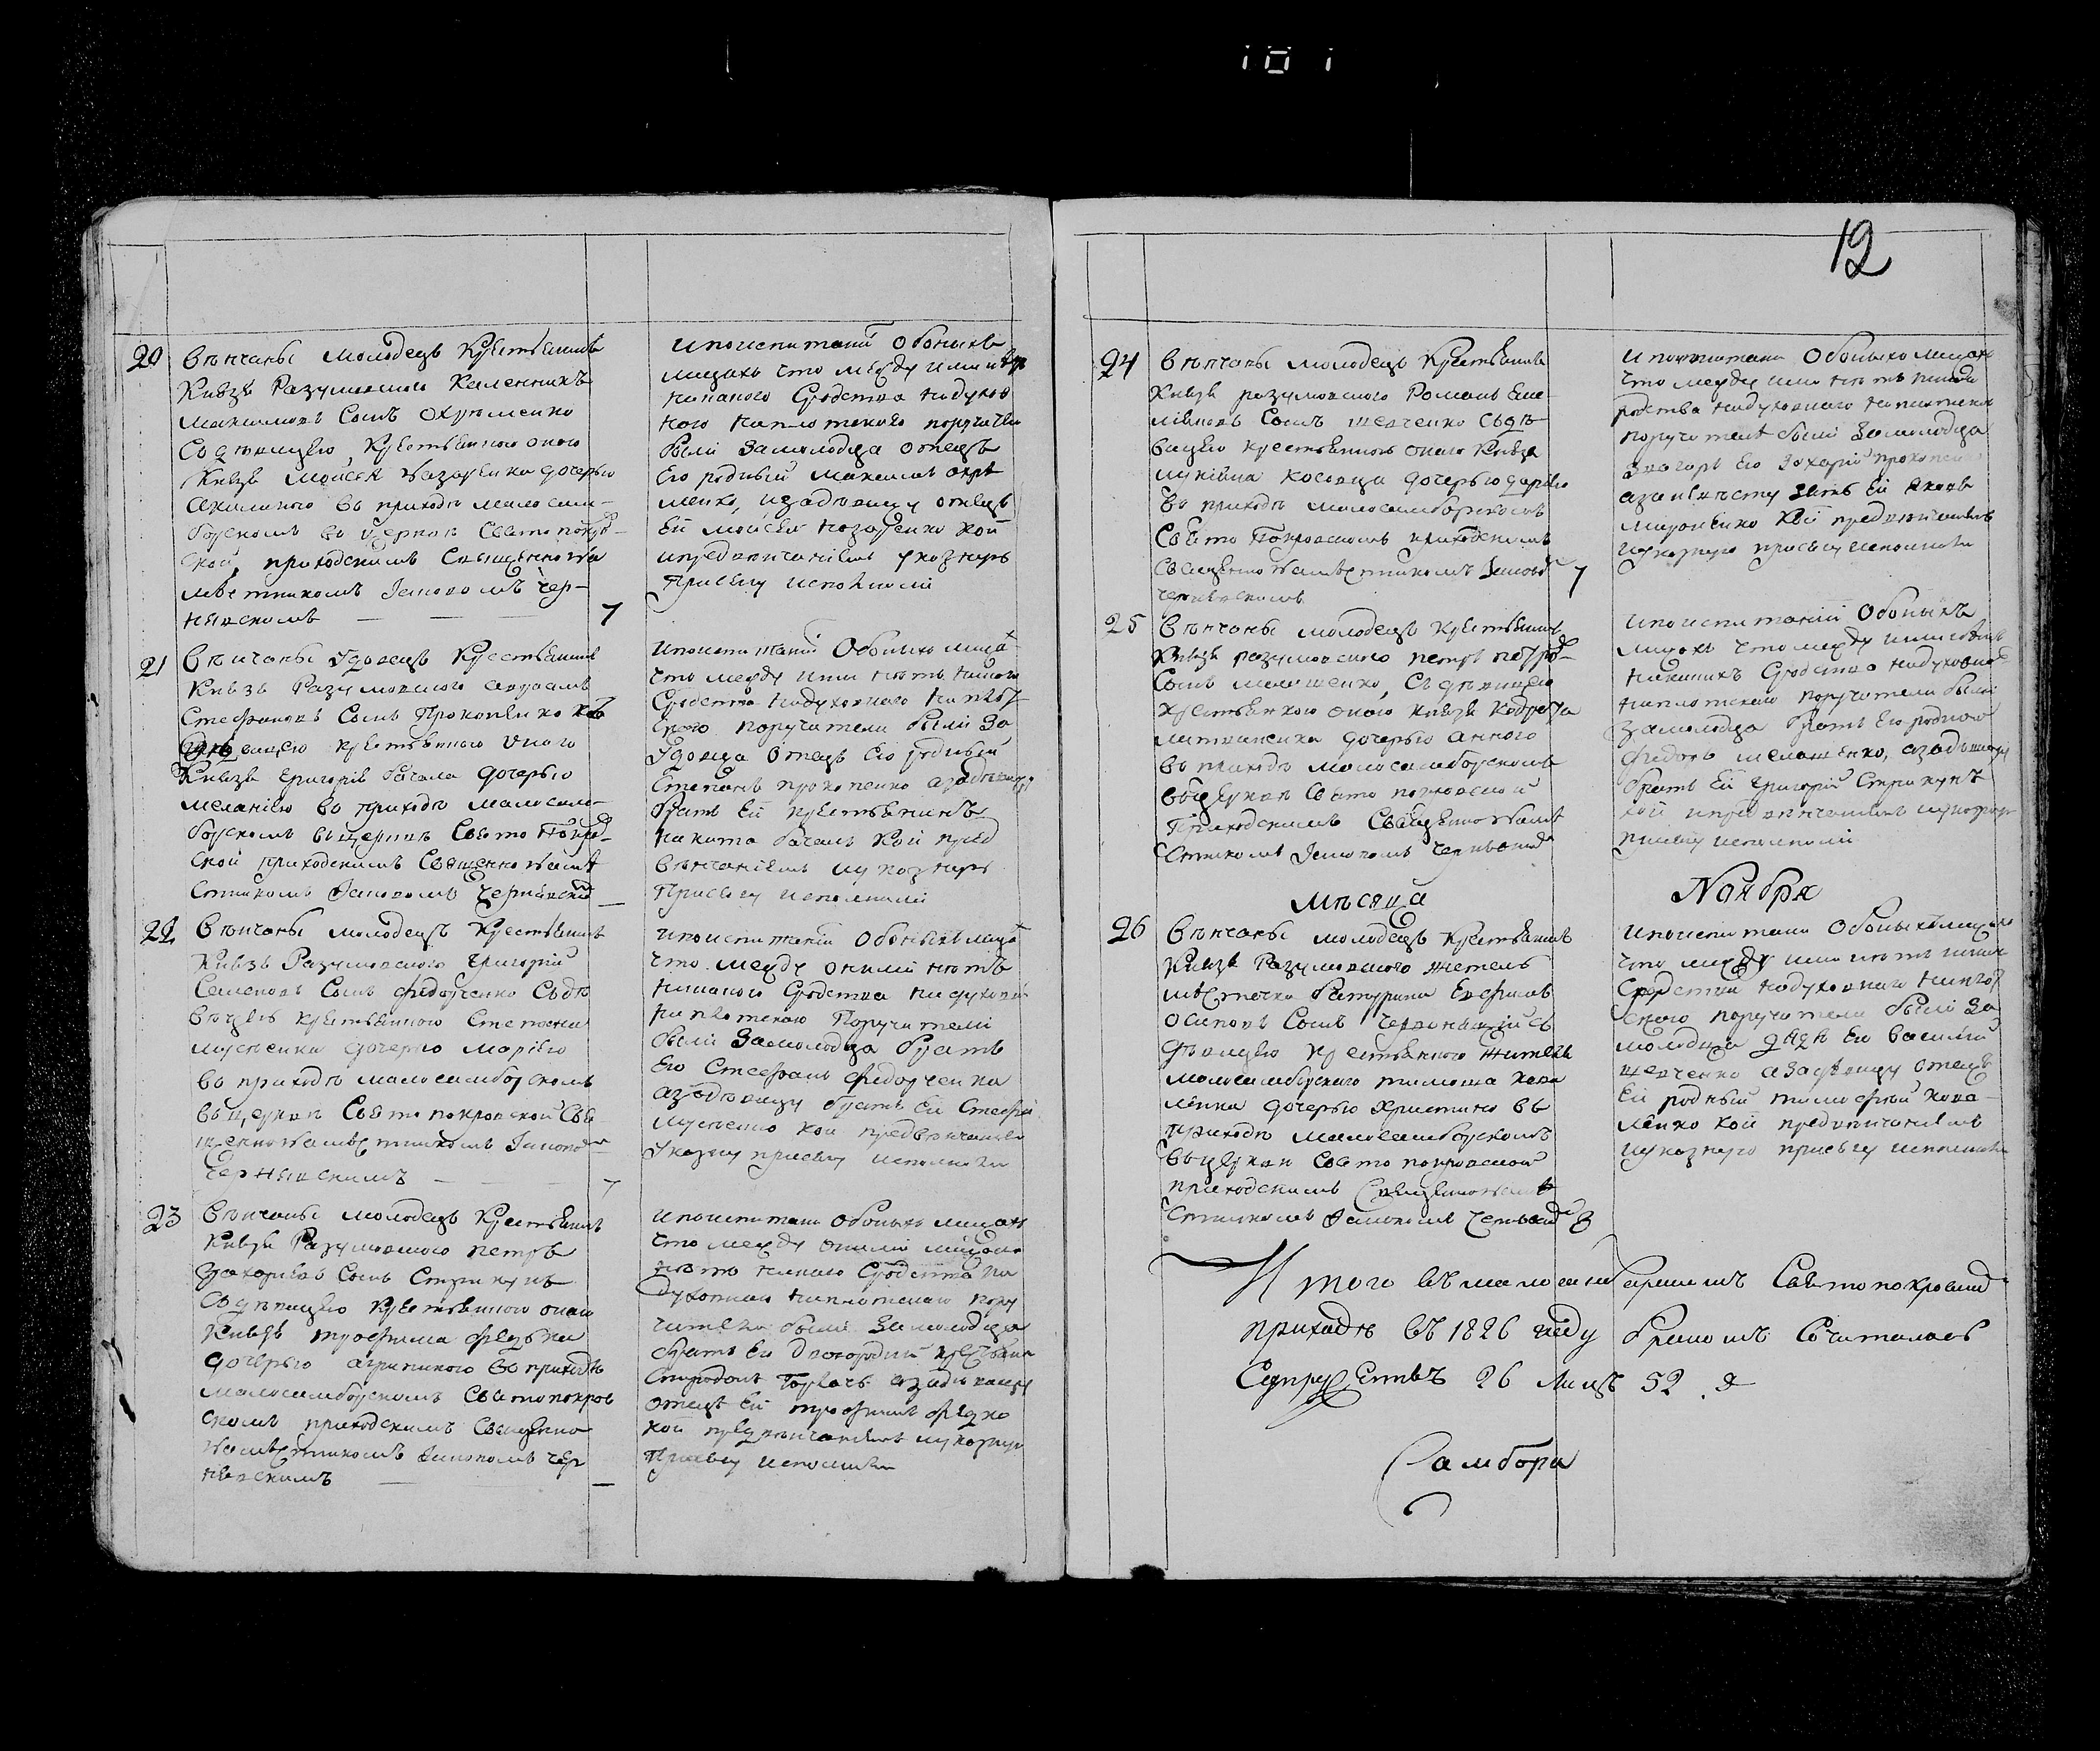 101
12
20 Венчаны молодецъ крестьянинъ
Князя Разумовского Каленникъ
Максимовъ Сынъ Охрѣменко
Съ девицею, крестьянкою оного
Князя Моисея Назаренка дочерью
въ приходѣ мало сам-
борскомъ въ церкви Свято покро-
ской, приходскимъ Священно на
местникомъ Іаковомъ Чер-
нявскимъ 7
и по испитаніи Обоихъ
лицахъ что между ими нѣт
никакого Сродства ни духов
ного ни плотского поручители
были За молодца отецъ
его родный Максимъ охре
менко, и за девицу отецъ
ей Моисей Назаренко кои
и пред венчаніемъ указную
Присягу исполнили
21 Венчаны Удовецъ Крестьянинъ
Князя Разумовского
Стефановъ Сынъ Прокопенко
девицею крестьянкою оного
Князя Григорія Бачала дочерью
Меланіею въ приходѣ мало сам-
борскомъ въ церкви Свято Покро-
ской приходскимъ Священно намѣ
стникомъ Іаковомъ Чернявским
и по испитаніи Обоихъ лицах
что между ими нетъ никакого
Сродства ни духовного ни плот
ского поручители были За
Удовца Отецъ его родный
Степанъ прокопенко а за девицу
братъ ей крестьянинъ
Никита Бачалъ кои пред
венчаніемъ и указную
Присягу исполнили
22 Венчаны молодецъ Крестьянинъ
Князя Разумовского Григорій
Семеновъ Сынъ Федорченко Съ де
вицею крестьянкою Степана
Мусіенка дочерью Маріею
въ приходѣ мало самборскомъ
въ церкви Свято покровской Свя
щенно намѣстникомъ Іаковом
Чернявскимъ 7
и по испитаніи Обоихъ лицах
что между оними нетъ
никакого Сродства ни духовн
ни плотского Поручители
были За молодца братъ
его Стефанъ Федорченко
а за девицу братъ ей Стефан
Мусіенко кои пред венчаніем
Указную присягу исполнили
23 Венчаны молодецъ Крестьянинъ
Князя Разумовского Петръ
Захаріевъ Сынъ Стрикунъ
Съ девицею крестьянкою оного
Князя Трофима Федька
дочерью агрипиною въ приходѣ
мало самборскомъ Свято покров
скомъ приходскимъ Священно
намѣстникомъ Іаковомъ Чер
нявскимъ
и по испитаніи обоихъ лицахъ
что между оними лицами
нетъ никакого Сродства ни
духовного ни плотского пору
чители были За молодца
братъ его двоюродный крестьянин
Горбачъ а за девицу
отецъ ей Трофимъ Федко
кои пред венчаніемъ и указную
Присягу исполнили
24 Венчаны молодецъ Крестьянинъ
Князя разумовского Романъ Еме
ліановъ Сынъ Шевченко Съ де
вицею крестьянкою оного Князя
Косовца дочерью Даріею
въ приходѣ мало самборскомъ
Свято Покровскомъ приходскимъ
Священно намѣстникомъ Іаково 7
Чернявскимъ
и по испитаніи Обоихъ лицахъ
что между ими нетъ никако
родства ни духовного ни плотского
поручители были За молодца
его Захарій прокопенко
а за невѣсту зять ей Яковъ
Мироненко кои пред венчаніемъ
и указную присягу исполнили
25 Венчаны молодецъ Крестьянинъ
Князя разумовского Петръ
Сынъ Мелашенко, Съ девицею
крестьянкою оного Князя Кодрата
Литвиненка дочерью Анною
въ приходѣ мало самборскомъ
въ церкви Свято покровской
Приходскимъ Священно намѣ
стникомъ Іаковомъ Чернявским
и по испитаніи Обоихъ
лицахъ что между ими нетъ
никакихъ Сродства ни духовного
ни плотского поручители были
За молодца братъ его родной
Федоръ Мелашенко, а за девицу
братъ ей Григорій Стрикунъ
кои и пред венчаніемъ и указную
присягу исполнили
Месяца Ноября
26 Венчаны молодецъ крестьянинъ
Князя Разумовского житель
мѣстечка Батурина Ефимъ
Осиповъ Сынъ Съ
девицею крестьянкою жителя
мало самборского Тимоша Кова
ленка дочерью Христиною въ
приходѣ мало самборскомъ
въ церкви Свято покровской
приходскимъ Священно намѣ
стникомъ Іаковомъ Чернявским 8
и по испитаніи Обоихъ лицахъ
что между ими нетъ никак
Сродства ни духовного ни плот
ского поручители были За
молодца дядя его Василій
Шевченко а за девицу отецъ
ей родный Тимофей Кова-
ленко кои пред венчаніемъ
и указную присягу исполнили
Итого въ мало самборскомъ Свято покровском
приходѣ въ 1826 году браком Сочеталось
Супружествъ 26 Лицъ 52. —
Самбора